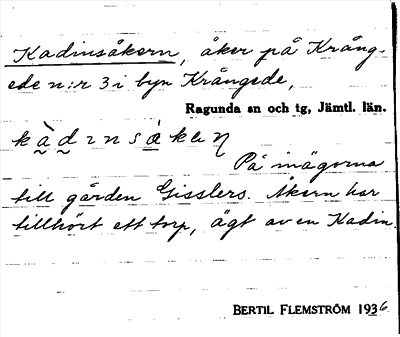 Kadinsåkern, åker på Kràng-
ede n:r 3 i byn Krångede,
Ragunda sn och tg, Jämtl. län.
På inägorna
till gården Gisslers. Åkern har
tillhört ett torp, ägt av en Kadin.
BERTIL FLEMSTRÖM 1936